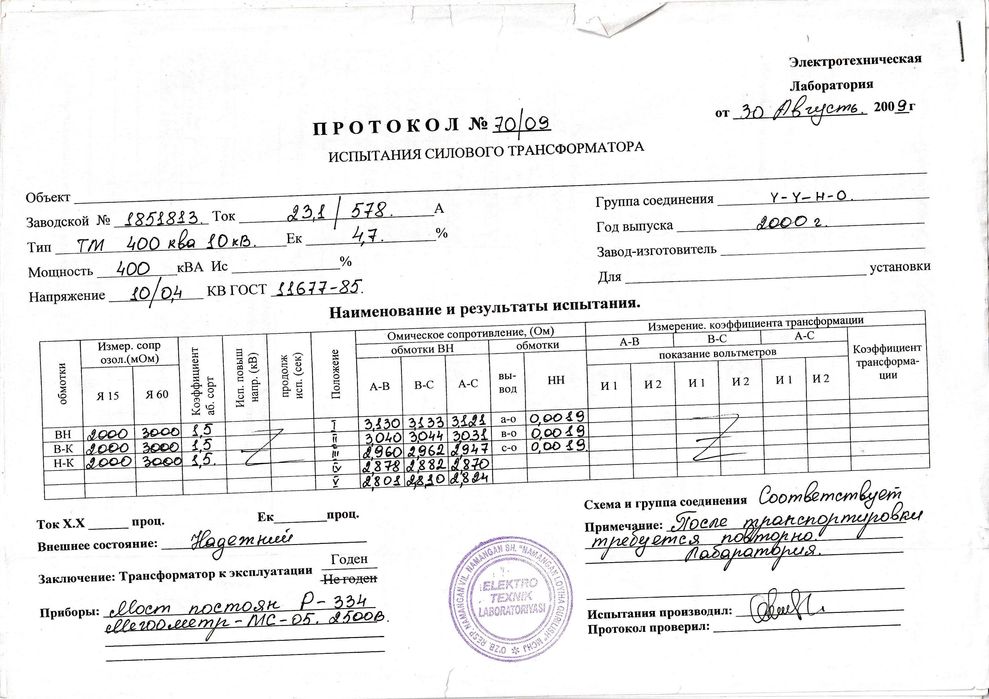 Электротехническая
Лаборатория
от 30 Августь. 2009г
ПРОТОКОЛ № 70/09
ИСПЫТАНИЯ СИЛОВОГО ТРАНСФОРМАТОРА
Объект
Заводской № 1851813. Ток 23,1 / 578. А
Тип ТМ 400 ква 10 кв. Ек 4,7. %
Мощность 400 кВА Ис %
Напряжение 10/0,4 КВ ГОСТ 11677-85.
Группа соединения Y-Y-H-O.
Год выпуска 2000 г.
Завод-изготовитель
Для установки
Наименование и результаты испытания.
обмотки Измер. сопр озол.(мОм) Коэффициент аб. сорт Исп. повыш напр. (кВ) продолж исп. (сек) Положение Омическое сопротивление, (Ом) Измерение. коэффициента трансформации
обмотки ВН обмотки А-В В-С А-С Коэффициент трансформа-ции
показание вольтметров
Я 15 Я 60 А-В В-С А-С вы-вод НН И 1 И 2 И 1 И 2 И 1 И 2
ВН 2000 3000 1,5 I 3,130 3,133 3,121 а-о 0,0019
В-К 2000 3000 1,5 II 3,040 3,044 3,031 в-о 0,0019
Н-К 2000 3000 1,5. III 2,960 2,962 2,947 с-о 0,0019
IV 2,878 2,882 2,870
V 2,801 2,810 2,824
Ток Х.Х проц. Ек проц.
Внешнее состояние: Надежний
Годен
Заключение: Трансформатор к эксплуатации Не годен
Приборы: Мост постоян Р-334
Мегоометр-МС-05. 2500в.
Схема и группа соединения Соответствует
Примечание: После транспортировки
требуется повторно.
Лабаратория.
Испытания производил:
Протокол проверил:
ELEKTRO
TEXNIK
LABORATORIYASI